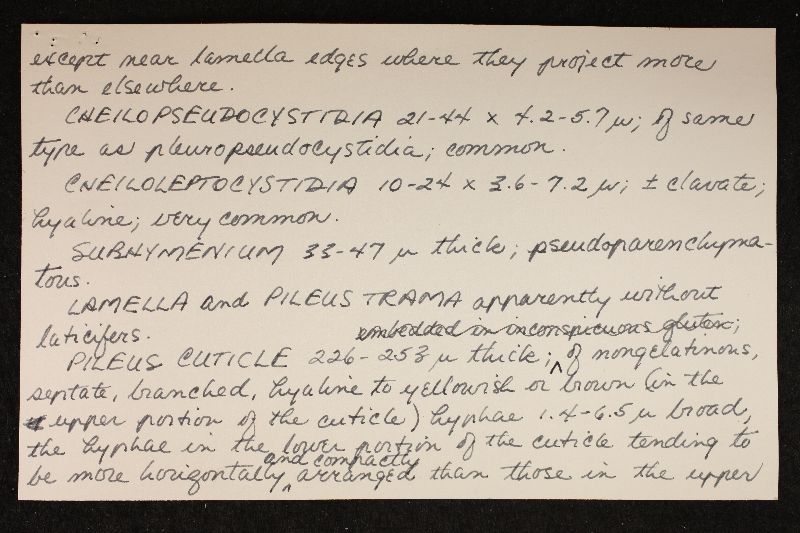 except near lamella edges where they project more
than elsewhere.
CHEILOPSEUDOCYSTIDIA 21-44 x 4.2-5.7 μ; of same
type as pleuropseudocystidia; common.
CHEILOLEPTOCYSTIDIA 10-24 x 3.6-7.2 μ; ± clavate;
hyaline; very common.
SUBHYMENIUM 33-47 μ thick; pseudoparenchyma-
tous.
LAMELLA and PILEUS TRAMA apparently without
laticifers.
embedded in inconspicuous gluten;
PILEUS CUTICLE 226-253 μ thick; of nongelatinous,
septate, branched, hyaline to yellowish or brown (in the
upper portion of the cuticle) hyphae 1.4-6.5 μ broad,
the hyphae in the lower portion of the cuticle tending to
and compactly
be more horizontally arranged than those in the upper